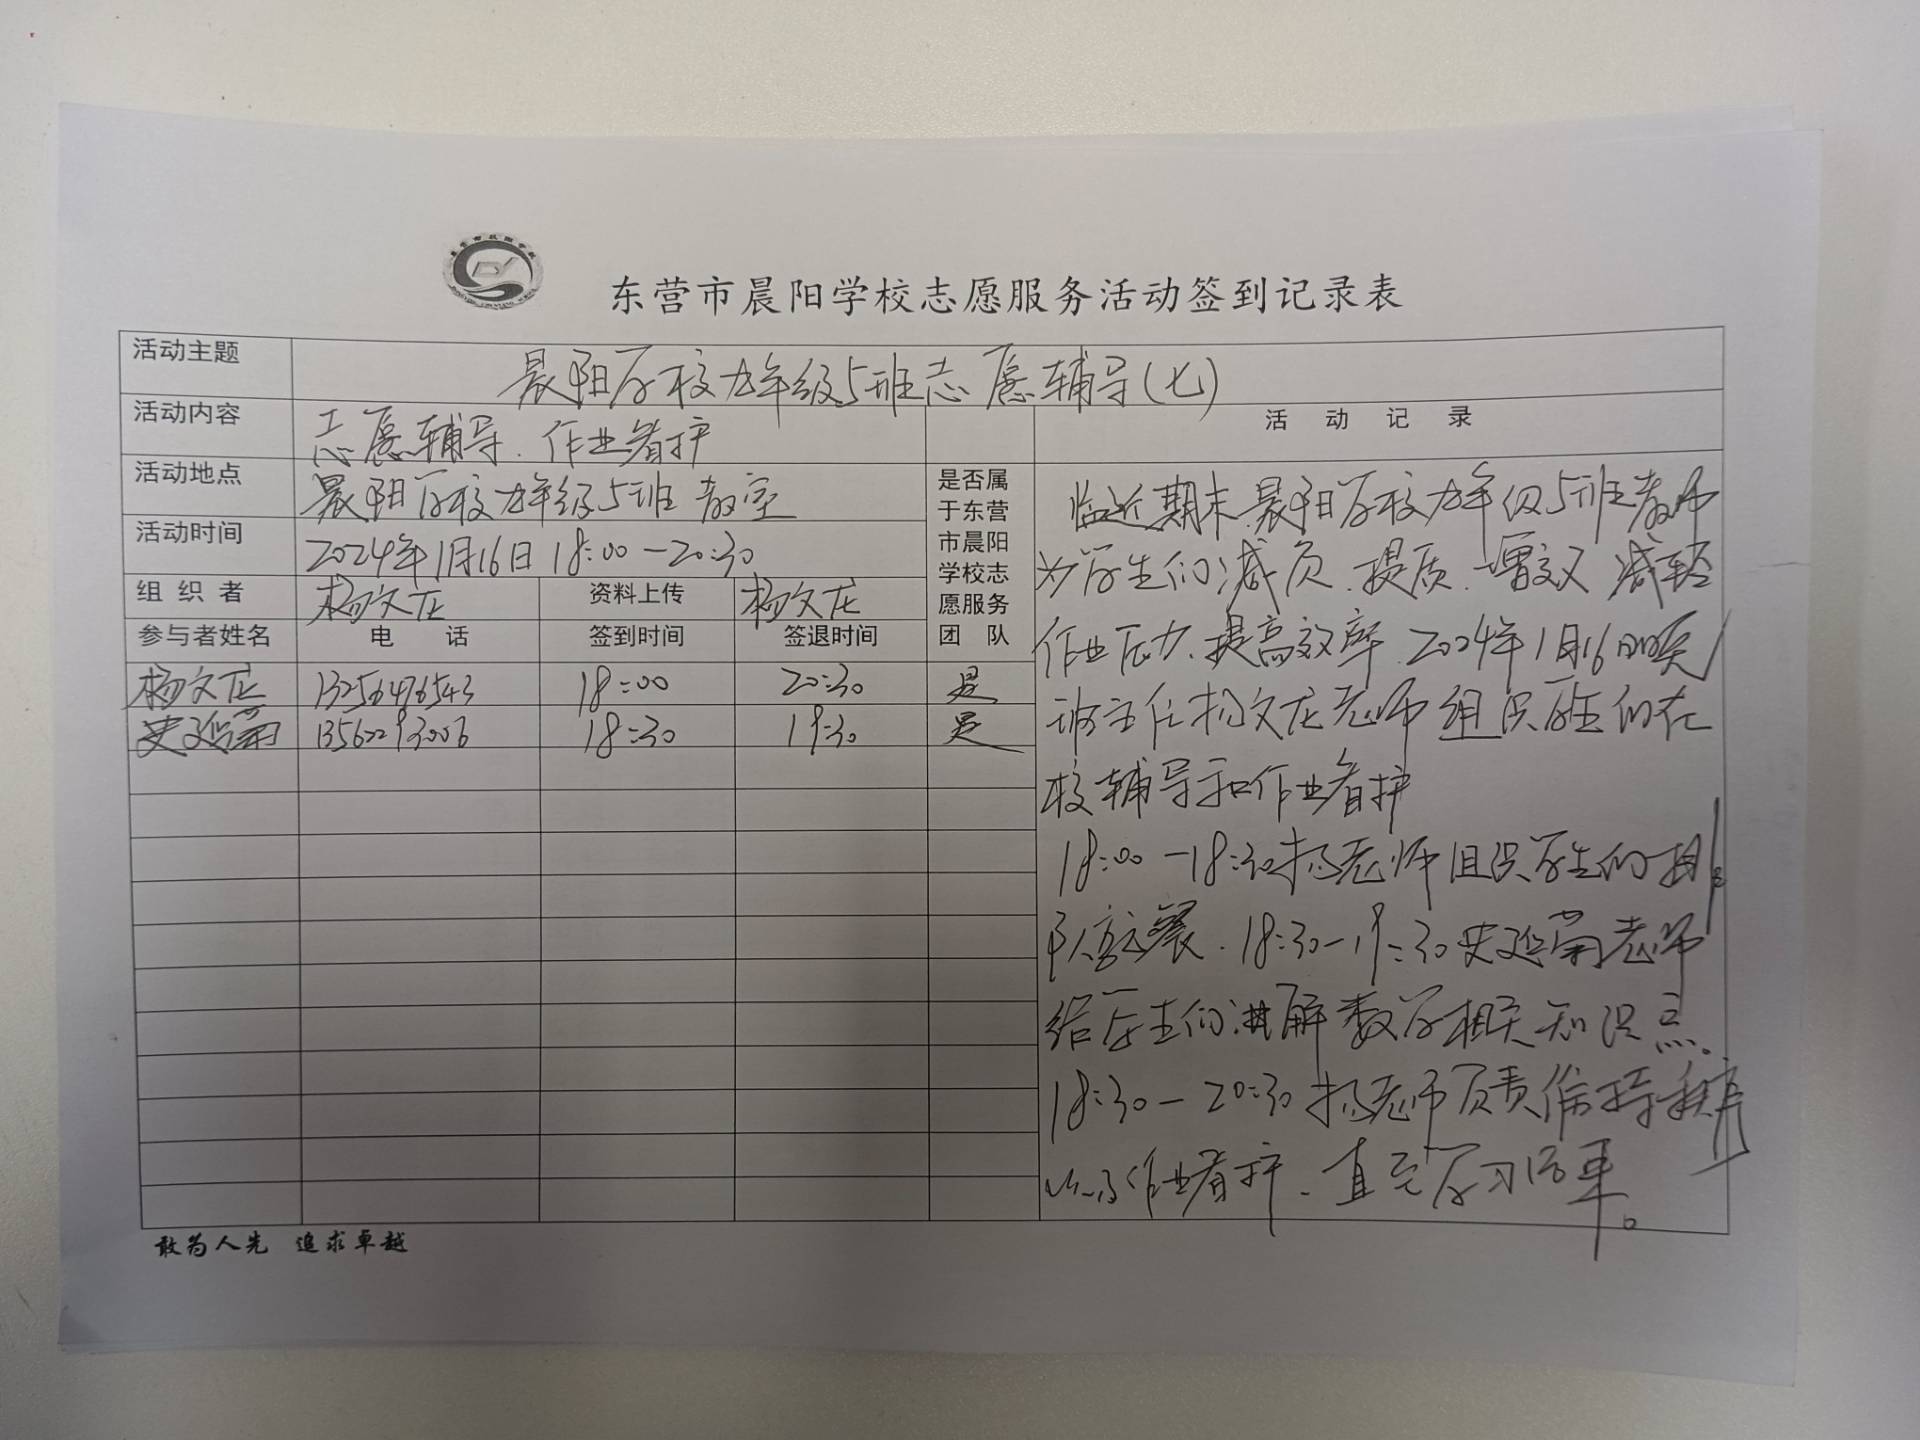 东营市晨阳学校志愿服务活动签到记录表
活动主题 晨阳学校九年级5班志愿辅导(七)
活动内容 志愿辅导、作业看护
活动记录
活动地点 晨阳学校九年级5班教室
活动时间 2024年1月16日 18:00-20:30
组织者 杨文龙 资料上传 杨文龙
是否属
于东营
市晨阳
学校志
愿服务
团队
参与者姓名 电话 签到时间 签退时间
杨文龙 13256476543 18:00 20:30 是
史 13562293006 18:30 19:30 是
临近期末晨阳学校九年级5班教师
为学生们减负、提质、增效 减轻
作业压力、提高效率 2024年1月16日晚
班主任杨文龙老师组织学生们在
校辅导和作业看护
18:00-18:30杨老师组织学生们排
队 餐、18:30-19:30史 老师
给学生们讲解数学相关知识点。
18:30-20:30杨老师负责维持秩序
以及作业看护、直至学习结束。
敢为人先 追求卓越